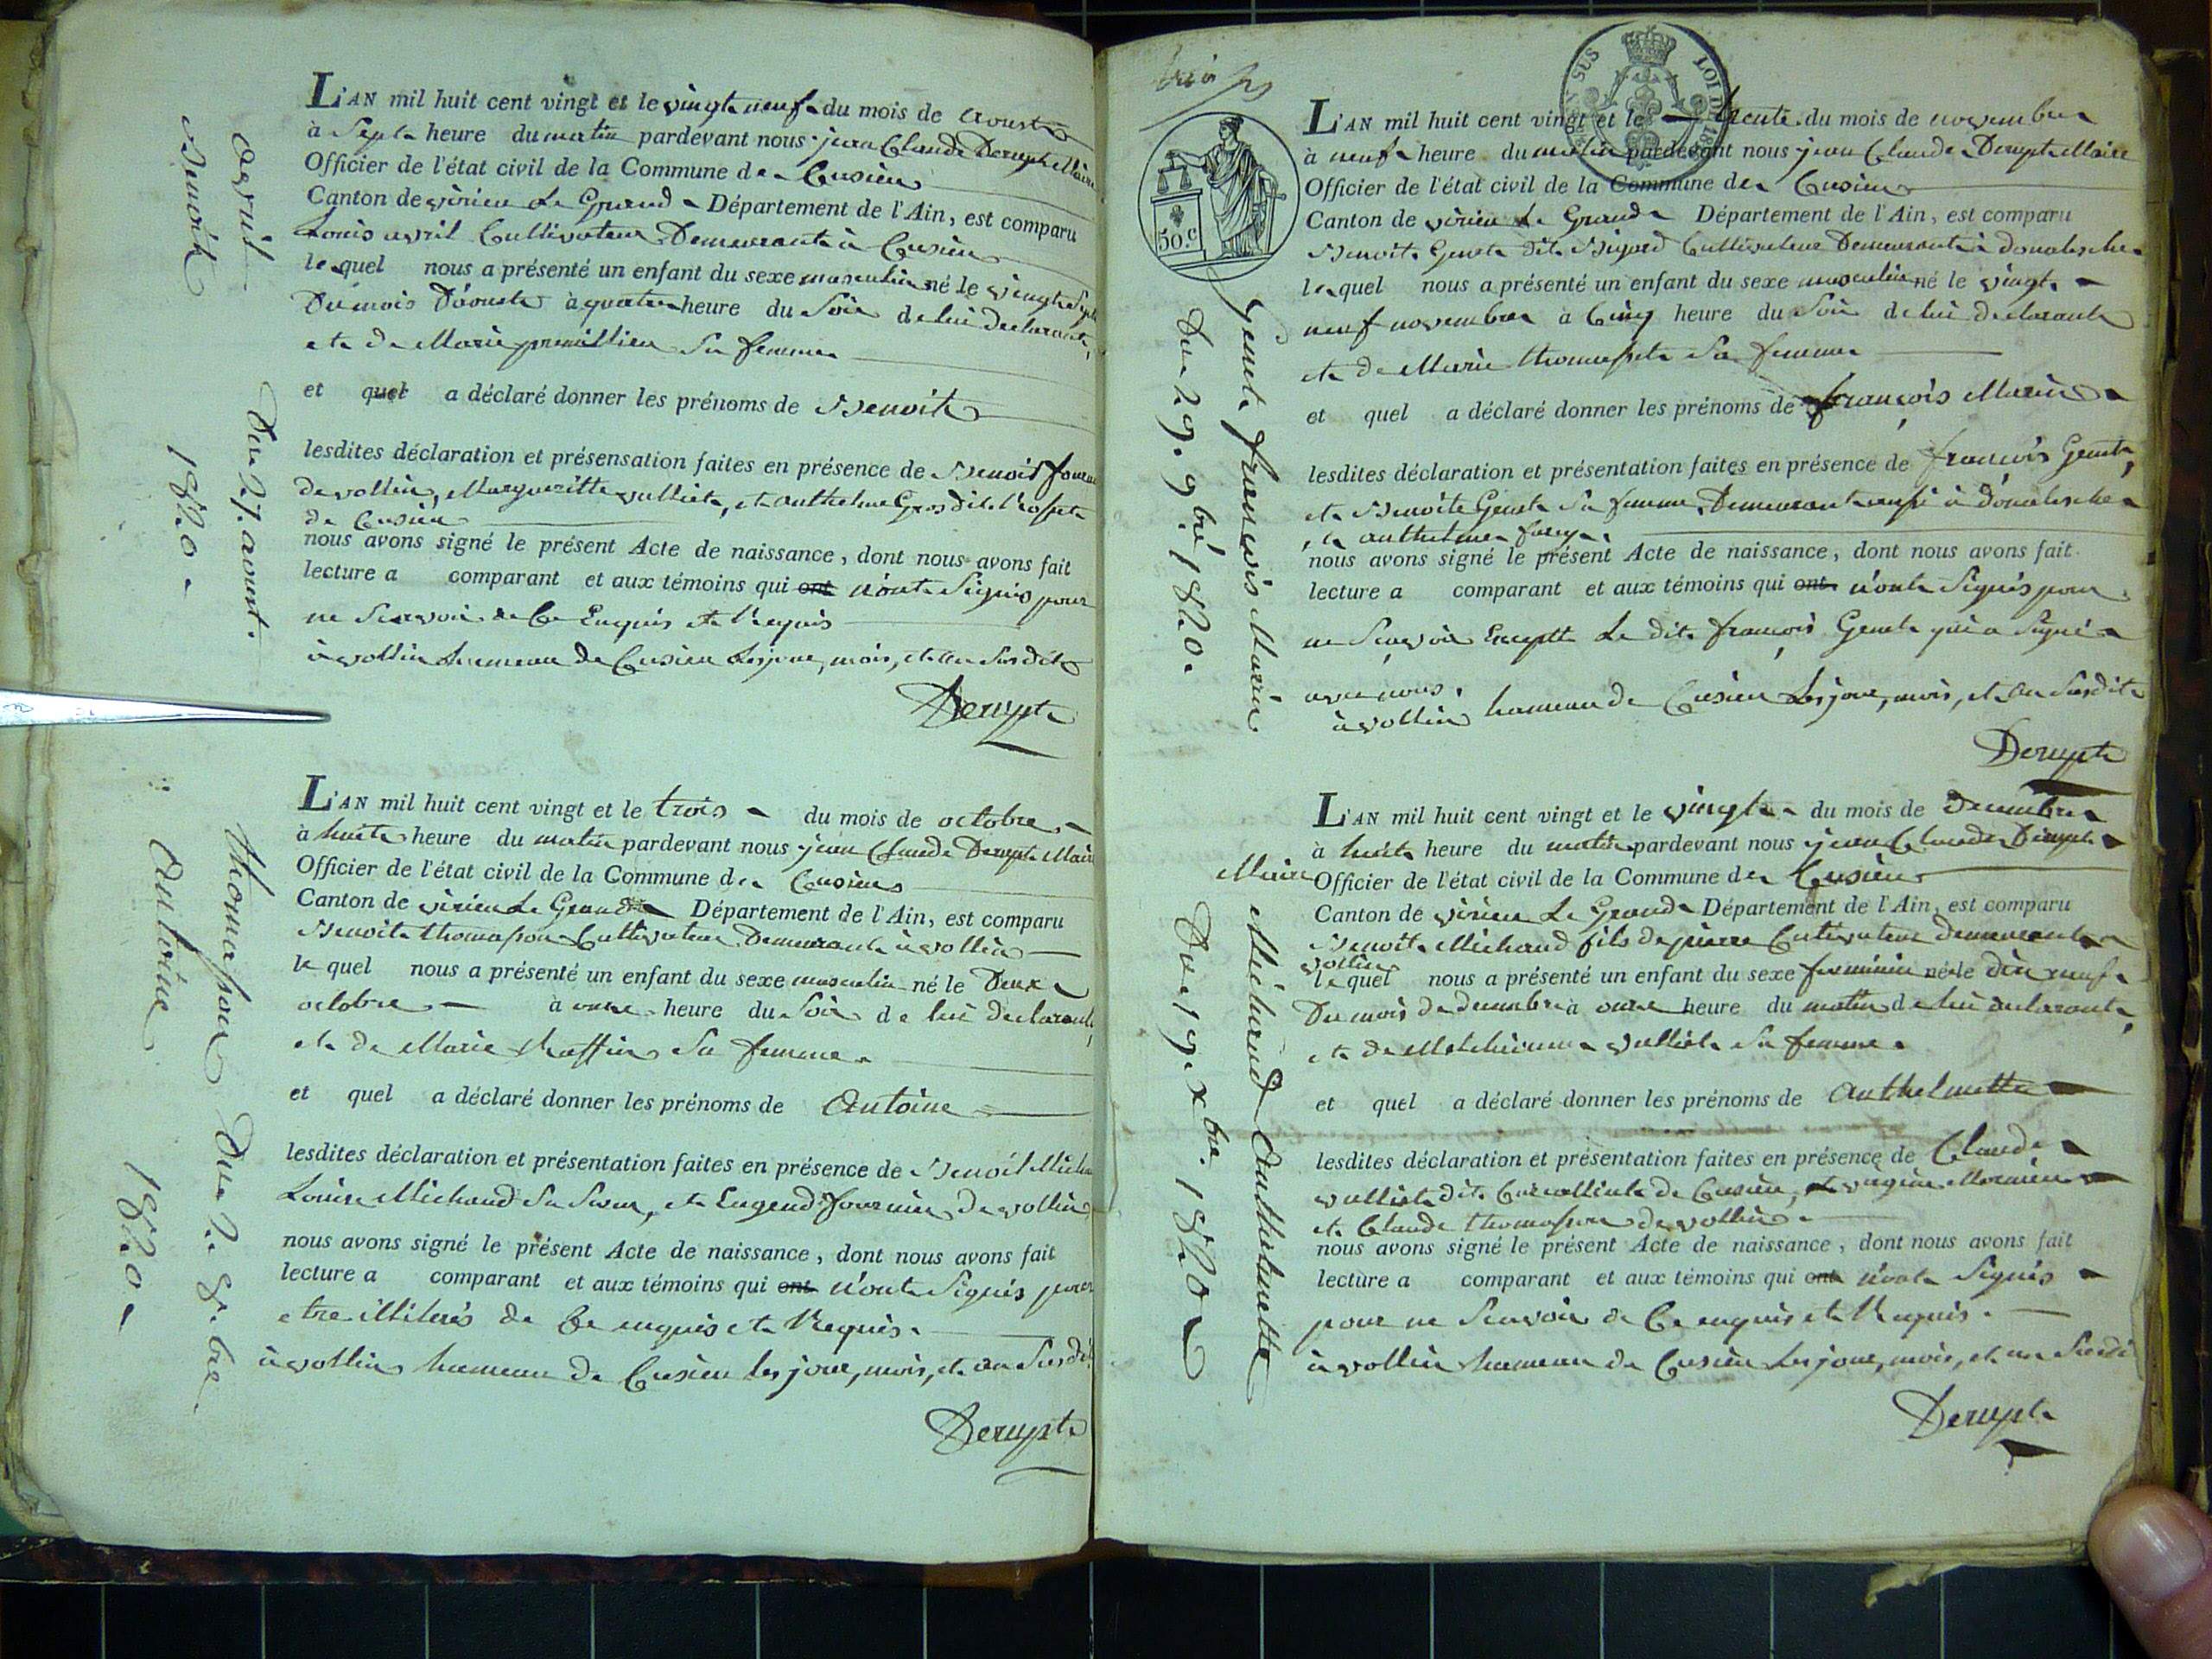 L'AN mil huit cent vingt et le vingt neuf du mois de aoust
à Sept heure du matin pardevant nous jean Claude Derupt Maire
Officier de l'état civil de la Commune de Cusieu
Canton de virieu Le Grand Département de l'Ain, est comparu
Louis avril Cultivateur Demeurant à Cusieu
lequel nous a présenté un enfant du sexe masculin né le vingt Sept
Du mois D'aoust à quatre heure du Soir de lui declarant,
et de Marie sa femme
et quel a déclaré donner les prénoms de Benoit
lesdites déclaration et présensation faites en présence de Benoit
de vollien, Margueritte vulliet, et anthelme Gros dit
de Cusieu
nous avons signé le présent Acte de naissance, dont nous avons fait
lecture a comparant et aux témoins qui ont n'ont Signés pour
ne Scavoir de Ce Enquis et Requis
à vollien hameau de Cusieu Les jour, mois, et an Susdit
Derupt
avril Benoit
Du 27. aoust. 1820.
L'AN mil huit cent vingt et le trois du mois de octobre
à huit heure du matin pardevant nous jean Claude Derupt Maire
Officier de l'état civil de la Commune de Cusieu
Canton de virieu Le Grand Département de l'Ain, est comparu
Benoit thomasson Cultivateur Demeurant à vollien
le quel nous a présenté un enfant du sexe masculin né le Deux
octobre à onze heure du Soir de lui declarant,
et de Marie Sa femme
et quel a déclaré donner les prénoms de Antoine
lesdites déclaration et présentation faites en présence de Benoit
Louise Michaud Sa Sœur, et Eugend fournier de vollien
nous avons signé le présent Acte de naissance, dont nous avons fait
lecture a comparant et aux témoins qui ont n'ont Signés pour
etre illiterés de Ce enquis et Requis.
à vollien hameau de Cusieu les jour, mois, et an Susdit
Derupt
thomasson Antoine
Du 2. 8.bre 1820.
50.C
L'AN mil huit cent vingt et le trente du mois de novembre
à neuf heure du matin pardevant nous jean Claude Derupt Maire
Officier de l'état civil de la Commune de Cusieu
Canton de virieu Le Grand Département de l'Ain, est comparu
Benoit Genet dit Cultivateur Demeurant à
lequel nous a présenté un enfant du sexe masculin né le vingt
neuf novembre à Cinq heure du Soir de lui declarant
et de Marie thomasset sa femme
et quel a déclaré donner les prénoms de françois Marie
lesdites déclaration et présentation faites en présence de francois Genet,
et Benoite Genet Sa femme Demeurant aussi à
, et anthelme
nous avons signé le présent Acte de naissance, dont nous avons fait
lecture a comparant et aux témoins qui ont n'ont Signés pour
ne Scavoir Excepté Le dit françois Genet qui a Signé
avec nous.
à vollien hameau de Cusieu Les jour, mois, et an Susdit
Derupt
Genet francois Marie
Du 29. 9.bre 1820.
L'AN mil huit cent vingt et le vingt du mois de Decembre
à huit heure du matin pardevant nous jean Claude Derupt
Maire Officier de l'état civil de la Commune de Cusieu
Canton de virieu Le Grand Département de l'Ain, est comparu
Benoit Michaud fils de pierre Cultivateur demeurant à
vollien
lequel nous a présenté un enfant du sexe feminin né le dix neuf
Du mois de decembre à onze heure du matin de lui declarant,
et de vulliet Sa femme
et quel a déclaré donner les prénoms de Anthelmette
lesdites déclaration et présentation faites en présence de Claude
vulliet dit de Cusieu,
et Claude thomasson de vollien
nous avons signé le présent Acte de naissance, dont nous avons fait
lecture a comparant et aux témoins qui ont n'ont Signés
pour ne Scavoir de Ce enquis et Requis.
à vollien hameau de Cusieu Les jour, mois, et an Susdit
Derupt
Michaud Anthelmette
Du 19. Xbre. 1820